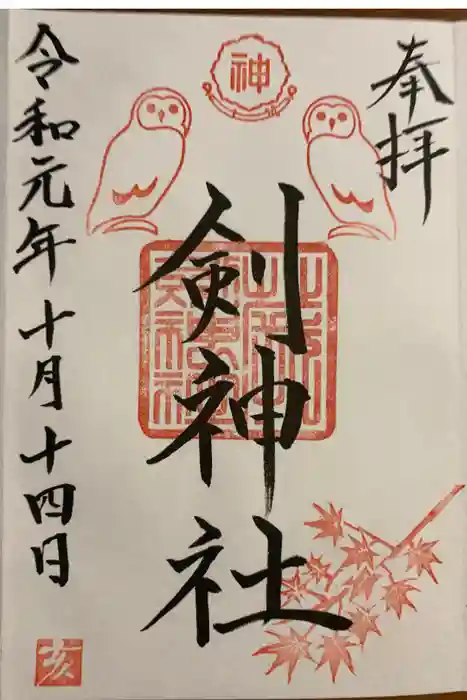 奉拝
神
剣神社
令和元年十月十四日
亥